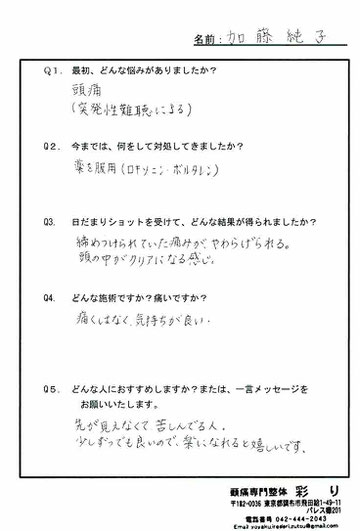 名前：加藤純子
Q1． 最初、どんな悩みがありましたか？
頭痛
(突発性難聴による)
Q2． 今までは、何をして対処してきましたか？
薬を服用(ロキソニン・ボルタレン)
Q3． 日だまりショットを受けて、どんな結果が得られましたか？
締めつけられていた痛みが、やわらげられる。
頭の中がクリアになる感じ。
Q4． どんな施術ですか？痛いですか？
痛くはなく、気持ちが良い．
Q5． どんな人におすすめしますか？または、一言メッセージを
お願いいたします。
先が見えなくて、苦しんでる人。
少しずつでも良いので、楽になれると嬉しいです。
頭痛専門整体 彩り
〒182-0036 東京都調布市飛田給1-49-11
パレス欅201
電話番号 042-444-2043